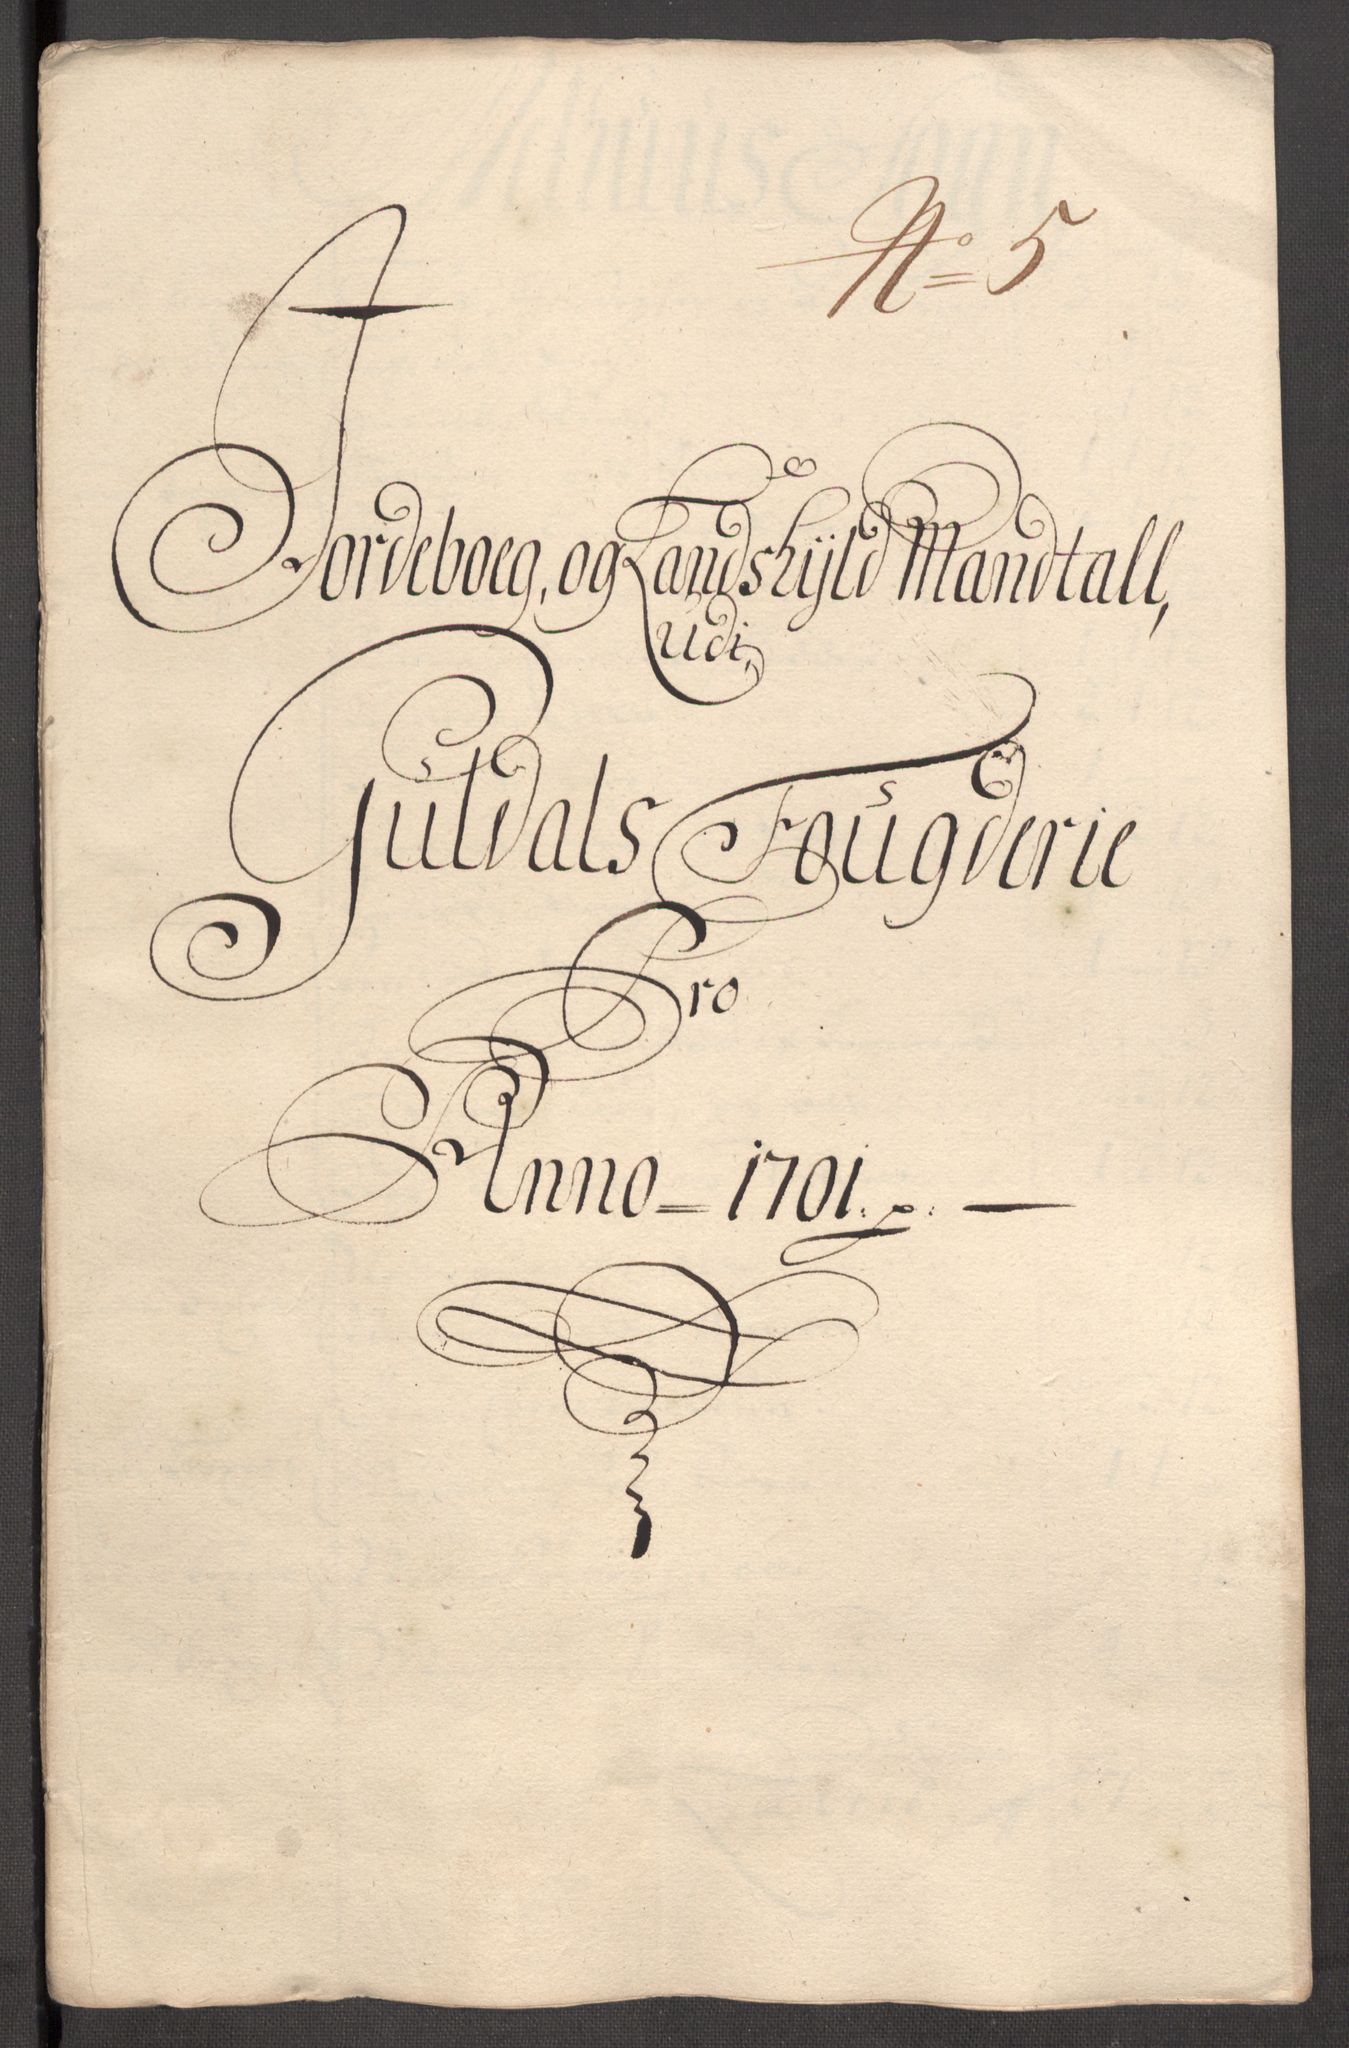 No 5
Jordeboeg, og Landskÿld Mandtall,
udi,
Guldals Fougderie
Pro
Anno = 1701.